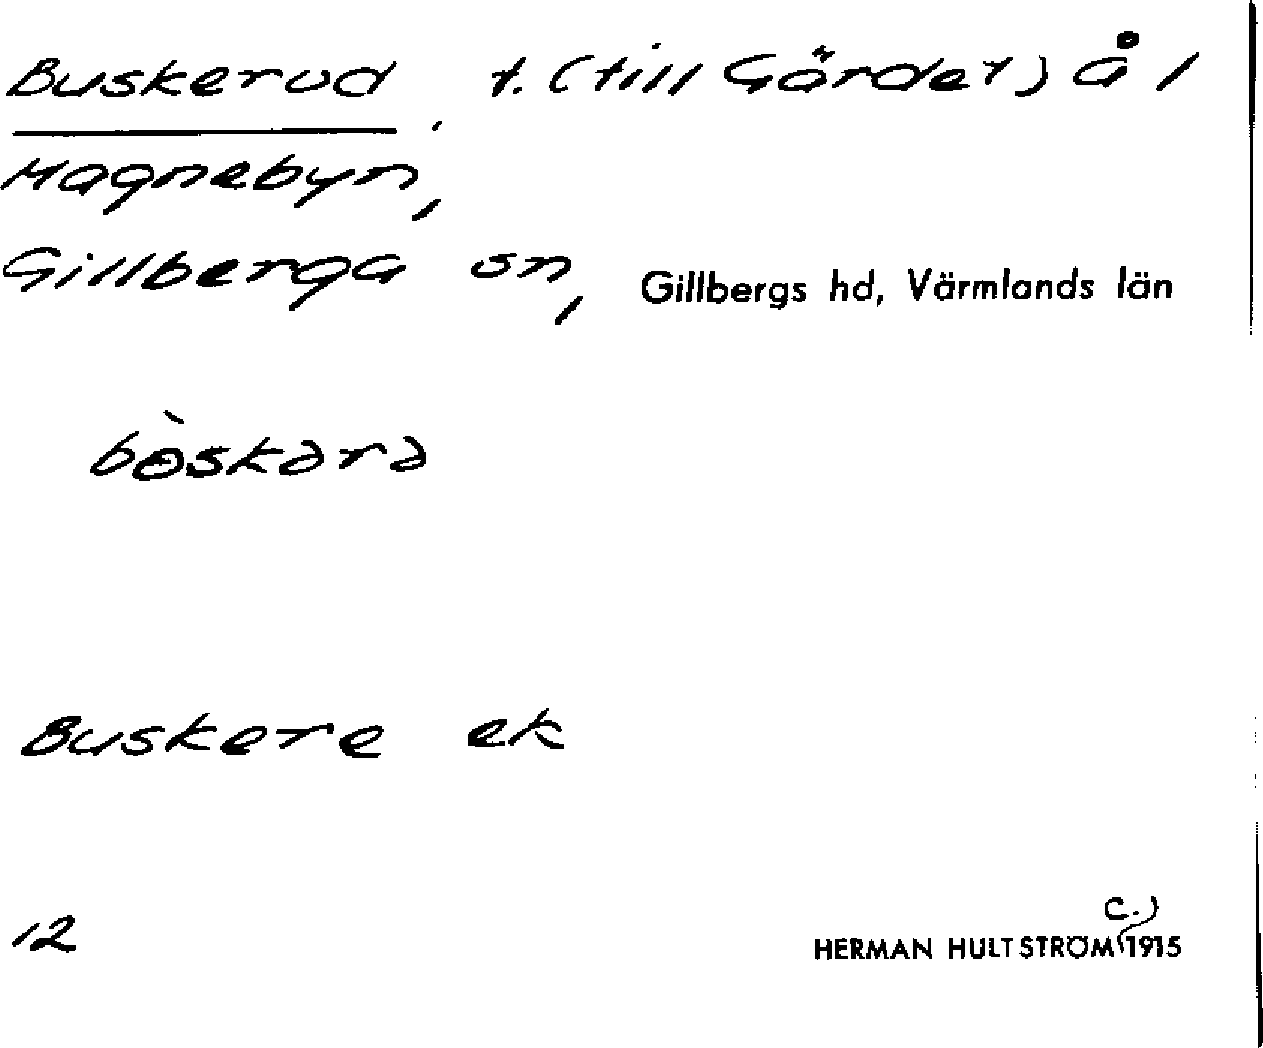 Buskerud t. (till Gärdet) å 1
Magnebyn,
Gillberga sn, Gillbergs hd, Värmlands län
bɵ̀skərə
Buskere ek
12
c.)
HERMAN HULTSTRÖM 1915